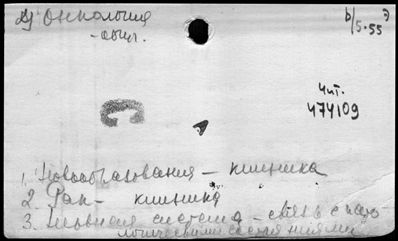 Д) Онкология
- общ.
b/5-55 Э
С
Чит.
474109
1. Новообразования - клиника
2. Рак - клиника
3. Нервная система - связь с пато
логическими состояниями